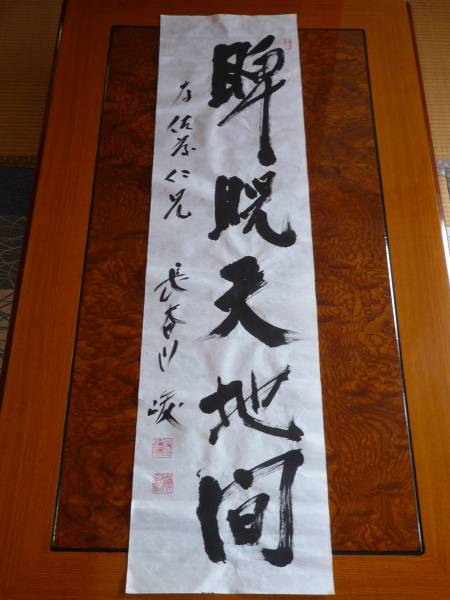 睥睨天地間
為佐藤仁兄
長谷川峻